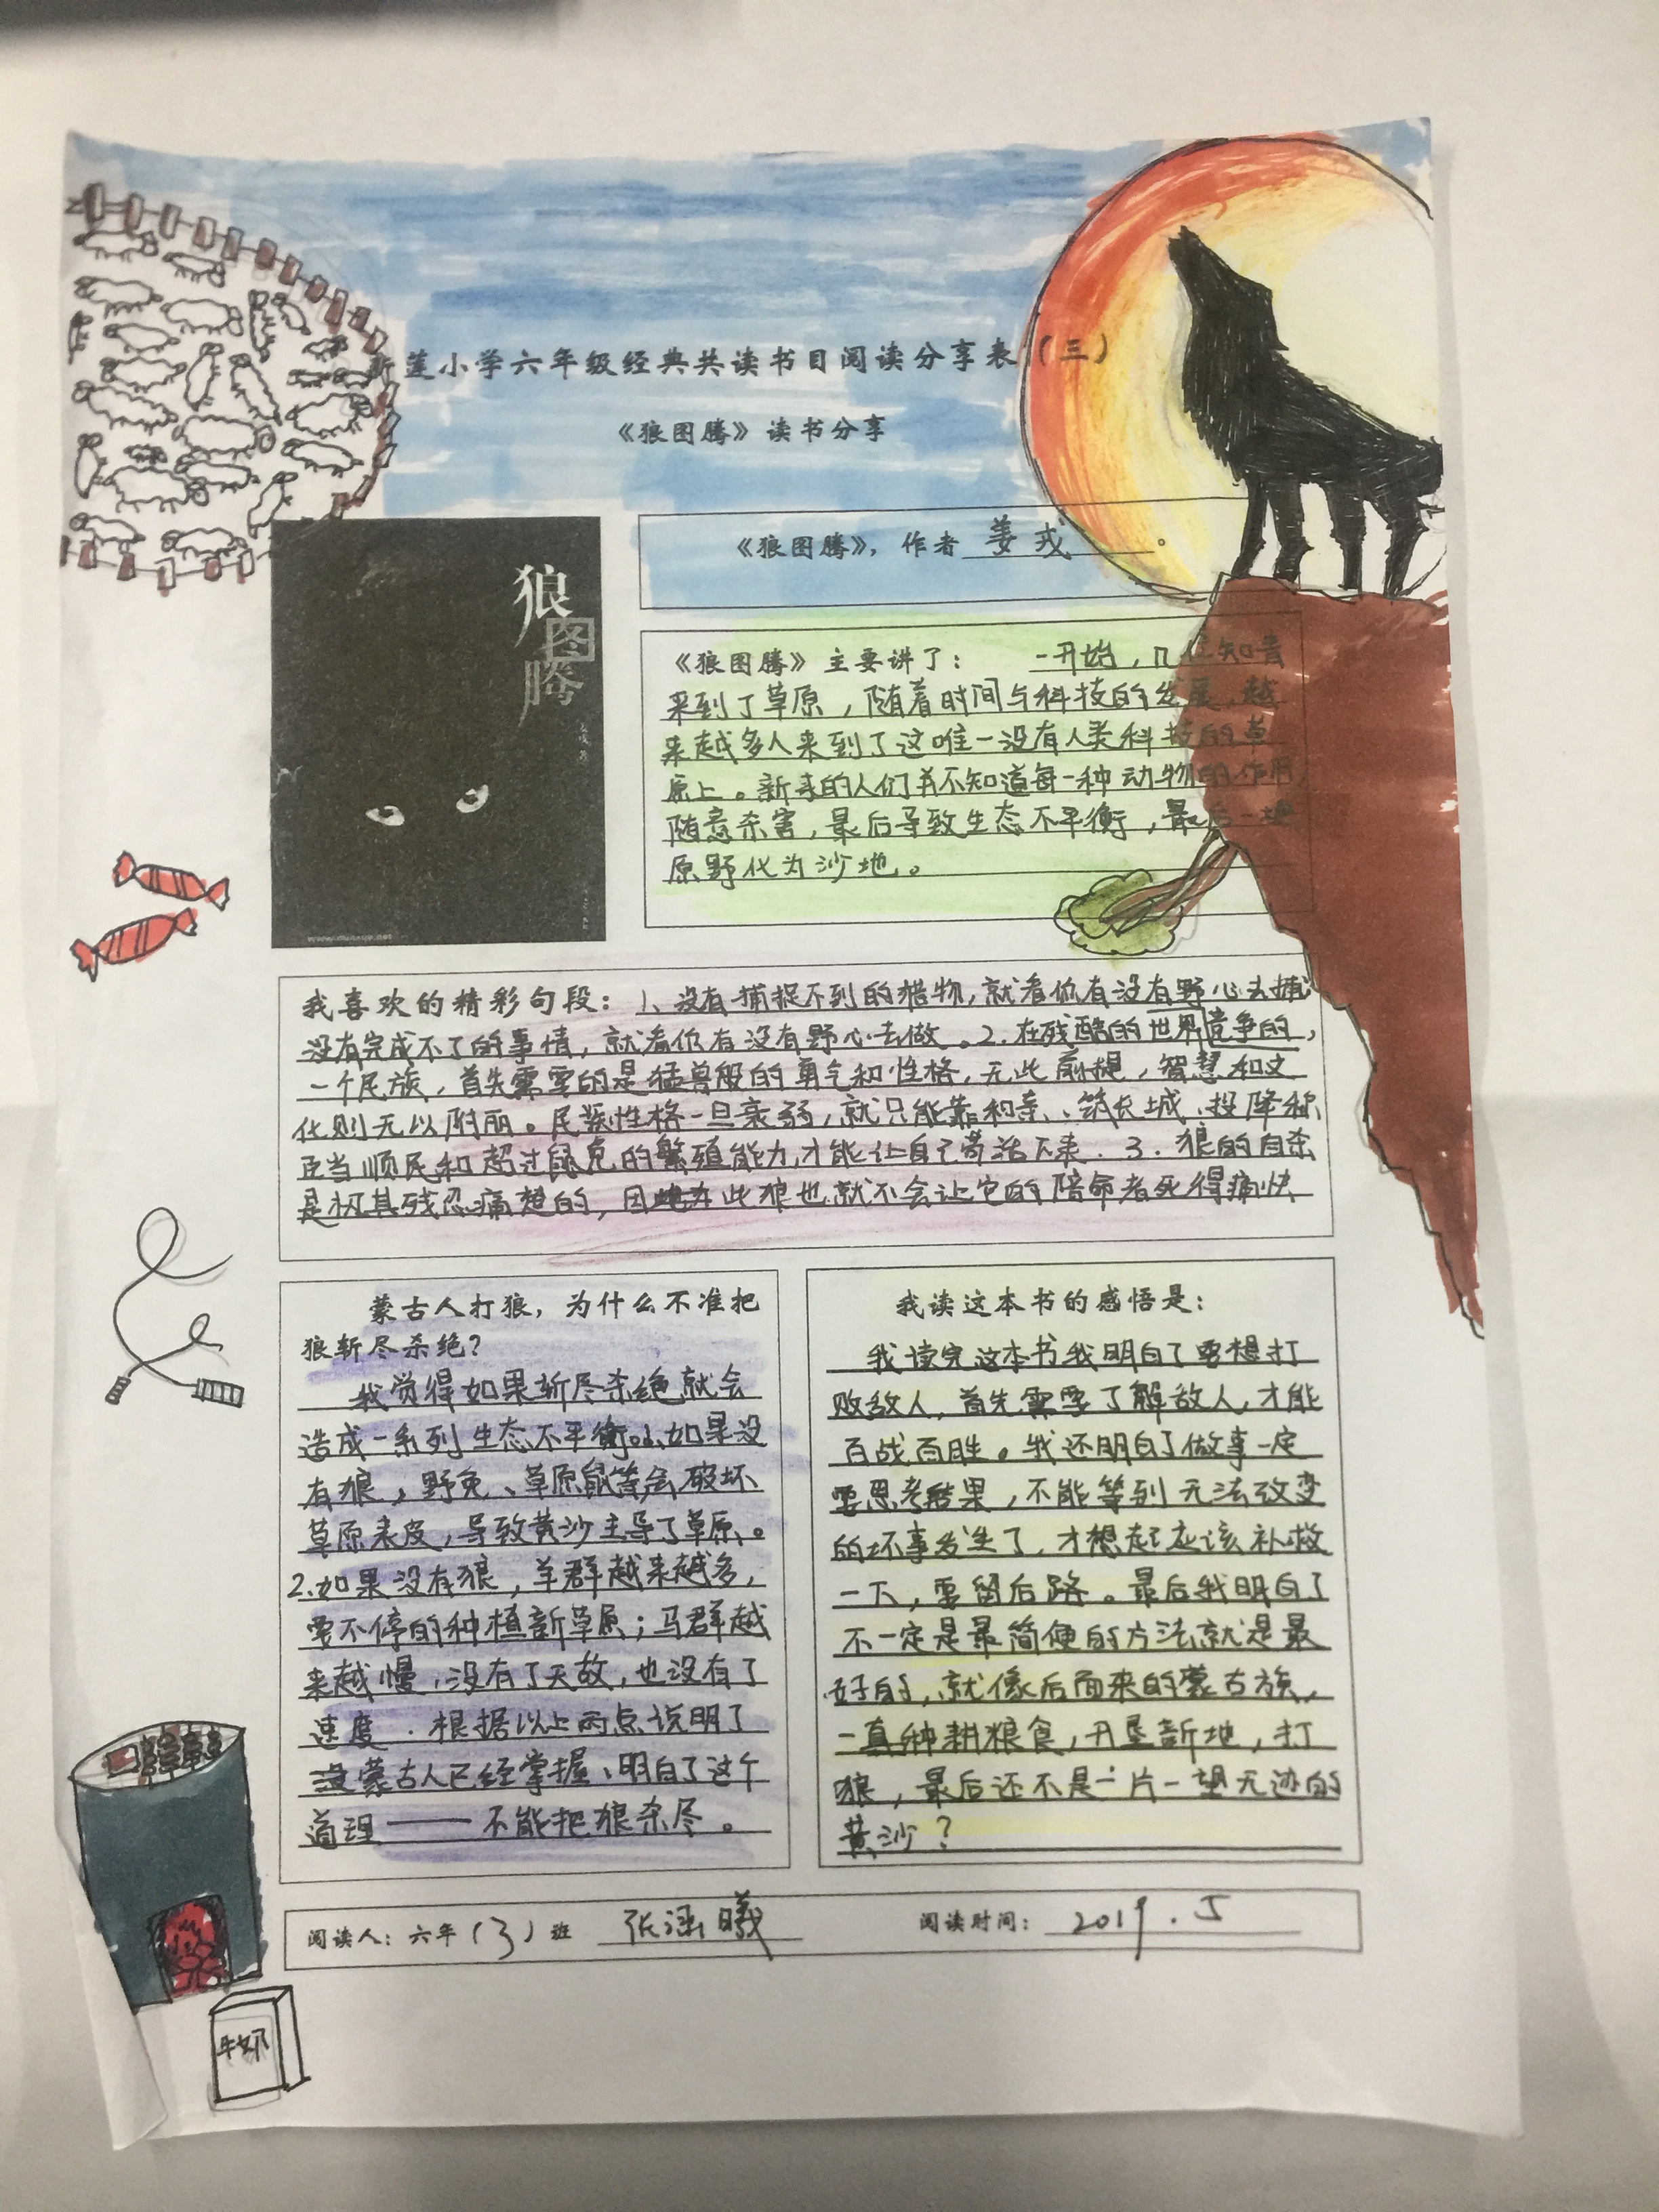 新莲小学六年级经典共读书目阅读分享表（三）
《狼图腾》读书分享
狼图腾
《狼图腾》，作者 姜戎 。
《狼图腾》主要讲了： 一开始，几位知青
来到了草原，随着时间与科技的发展，越
来越多人来到了这唯一没有人类科技的草
原上。新来的人们并不知道每一种动物的作用，
随意杀害，最后导致生态不平衡，最后一块
原野化为沙地。
我喜欢的精彩句段：1、没有捕捉不到的猎物，就看你有没有野心去捕；
没有完成不了的事情，就看你有没有野心去做。2.在残酷的世界竞争的，
一个民族，首先需要的是猛兽般的勇气和性格，无此前提，智慧和文
化则无以附丽。民族性格一旦衰弱，就只能靠和亲、筑长城、投降称
臣当顺民和超过鼠兔的繁殖能力，才能让自己苟活下来．3．狼的自杀
是极其残忍痛楚的，因此狼也就不会让它的陪命者死得痛快
蒙古人打狼，为什么不准把
狼斩尽杀绝？
我觉得如果斩尽杀绝就会
造成一系列生态不平衡。1、如果没
有狼，野兔、草原鼠等会破坏
草原表皮，导致黄沙主导了草原。
2.如果没有狼，羊群越来越多，
要不停的种植新草原；马群越
来越慢，没有了天敌，也没有了
速度．根据以上两点说明了
蒙古人已经掌握、明白了这个
道理——不能把狼杀尽。
我读这本书的感悟是：
我读完这本书我明白了要想打
败敌人，首先需要了解敌人，才能
百战百胜。我还明白了做事一定
要思考结果，不能等到无法改变
的坏事发生了，才想起应该补救
一下，要留后路。最后我明白了
不一定是最简便的方法就是最
好的，就像后面来的蒙古族，
一直种耕粮食，开垦新地，打
狼，最后还不是一片一望无边的
黄沙？
阅读人：六年（3）班 张涵曦 阅读时间： 2019．5
牛奶